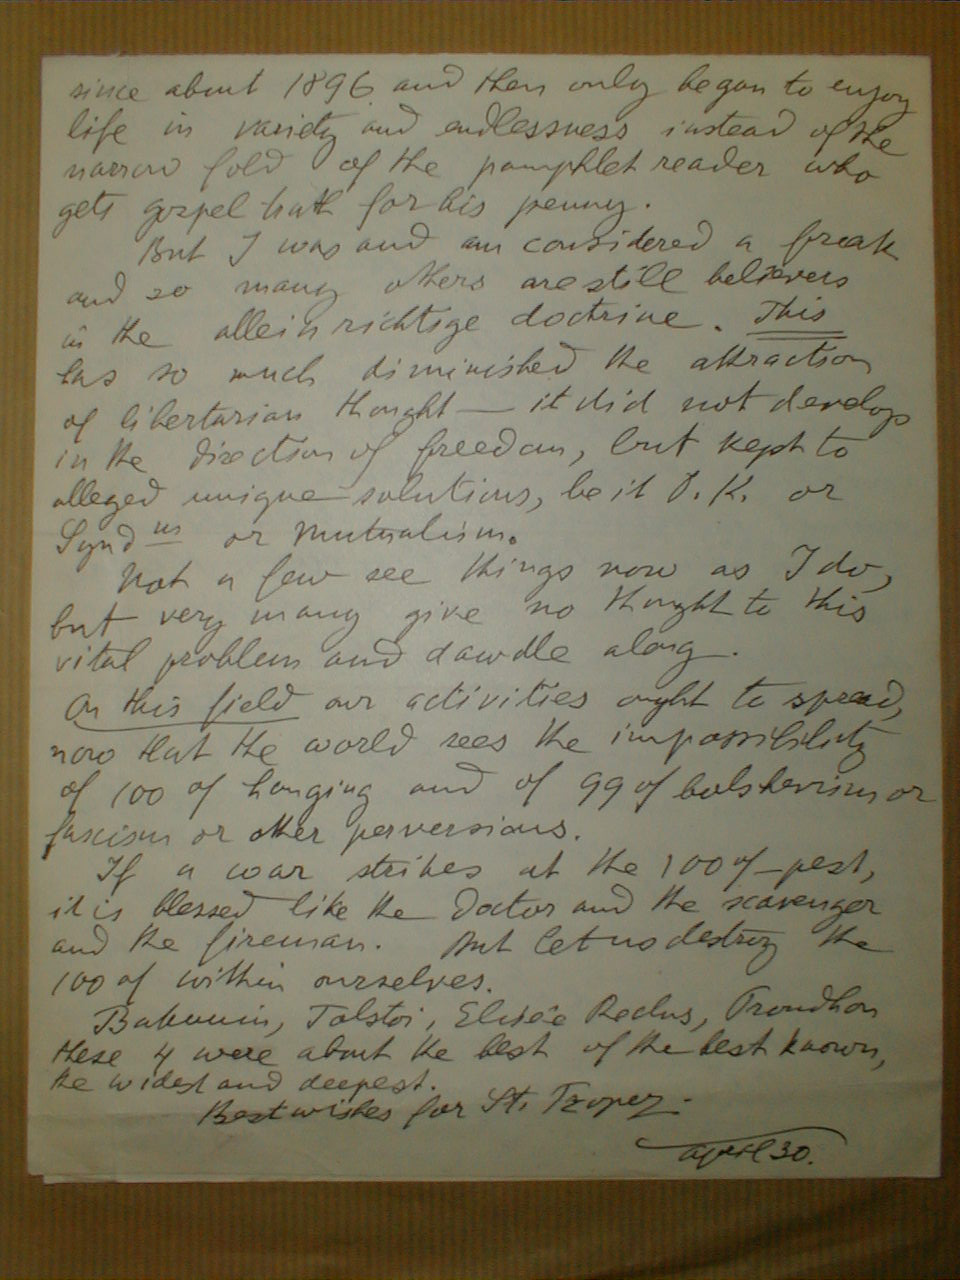 since about 1896 and then only began to enjoy
life in variety and endlessness instead of the
narrow fold of the pamphlet reader who
gets gospel truth for his penny.
But I was and am considered a freak
and so many others are still believers
in the alleinrichtige doctrine. This
has so much diminished the attraction
of libertarian thought — it did not develop
in the direction of freedom, but kept to
alleged unique solutions, be it P. K. or
Synd us or Mutualism.
Not a few see things now as I do,
but very many give no thought to this
vital problem and dawdle along.
On this field our activities ought to spread,
now that the world sees the impossibility
of 100 of hanging and of 99 of bolshevism or
fascism or other perversions.
If a war strikes at the 100 of - pest,
it is blessed like the Doctor and the scavenger
and the fireman. But let us destroy the
100 of within ourselves.
Bakunin, Tolstoi, Elisée Reclus, Proudhon
these 4 were about the best of the best known,
the widest and deepest.
Best wishes for St. Tropez.-
april 30.